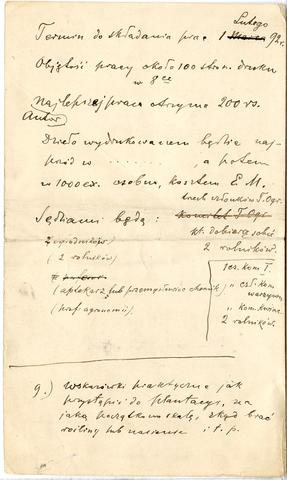 Lutego
Termin do składania prac 1 Marca 92 r.
Objętość pracy około 100 stron. druku
w 8ce
Najlepsza praca otrzyma 200 rs.
Autor
Dzieło wydrukowanem będzie naj-
pierw w ........ , a potem
w 1000 ex. osobno, kosztem E. M.
trzech członków T. Ogr.
Sędziami będą : Komitet T. Ogr
kt. dobiorą sobie
2 ogrodników 2 rolników.
( 2 rolników)
(aptekarz, lub przemysłowiec chemik)
(prof. agronomii).
1 cz. kom. T.
" czł. kom
warzywn.
" kom.
2 rolników.
9.) wskazówki praktyczne jak
przystąpić do plantacyi, na
jaką początkową skalę, skąd brać
rośliny lub nasiona i t. p.